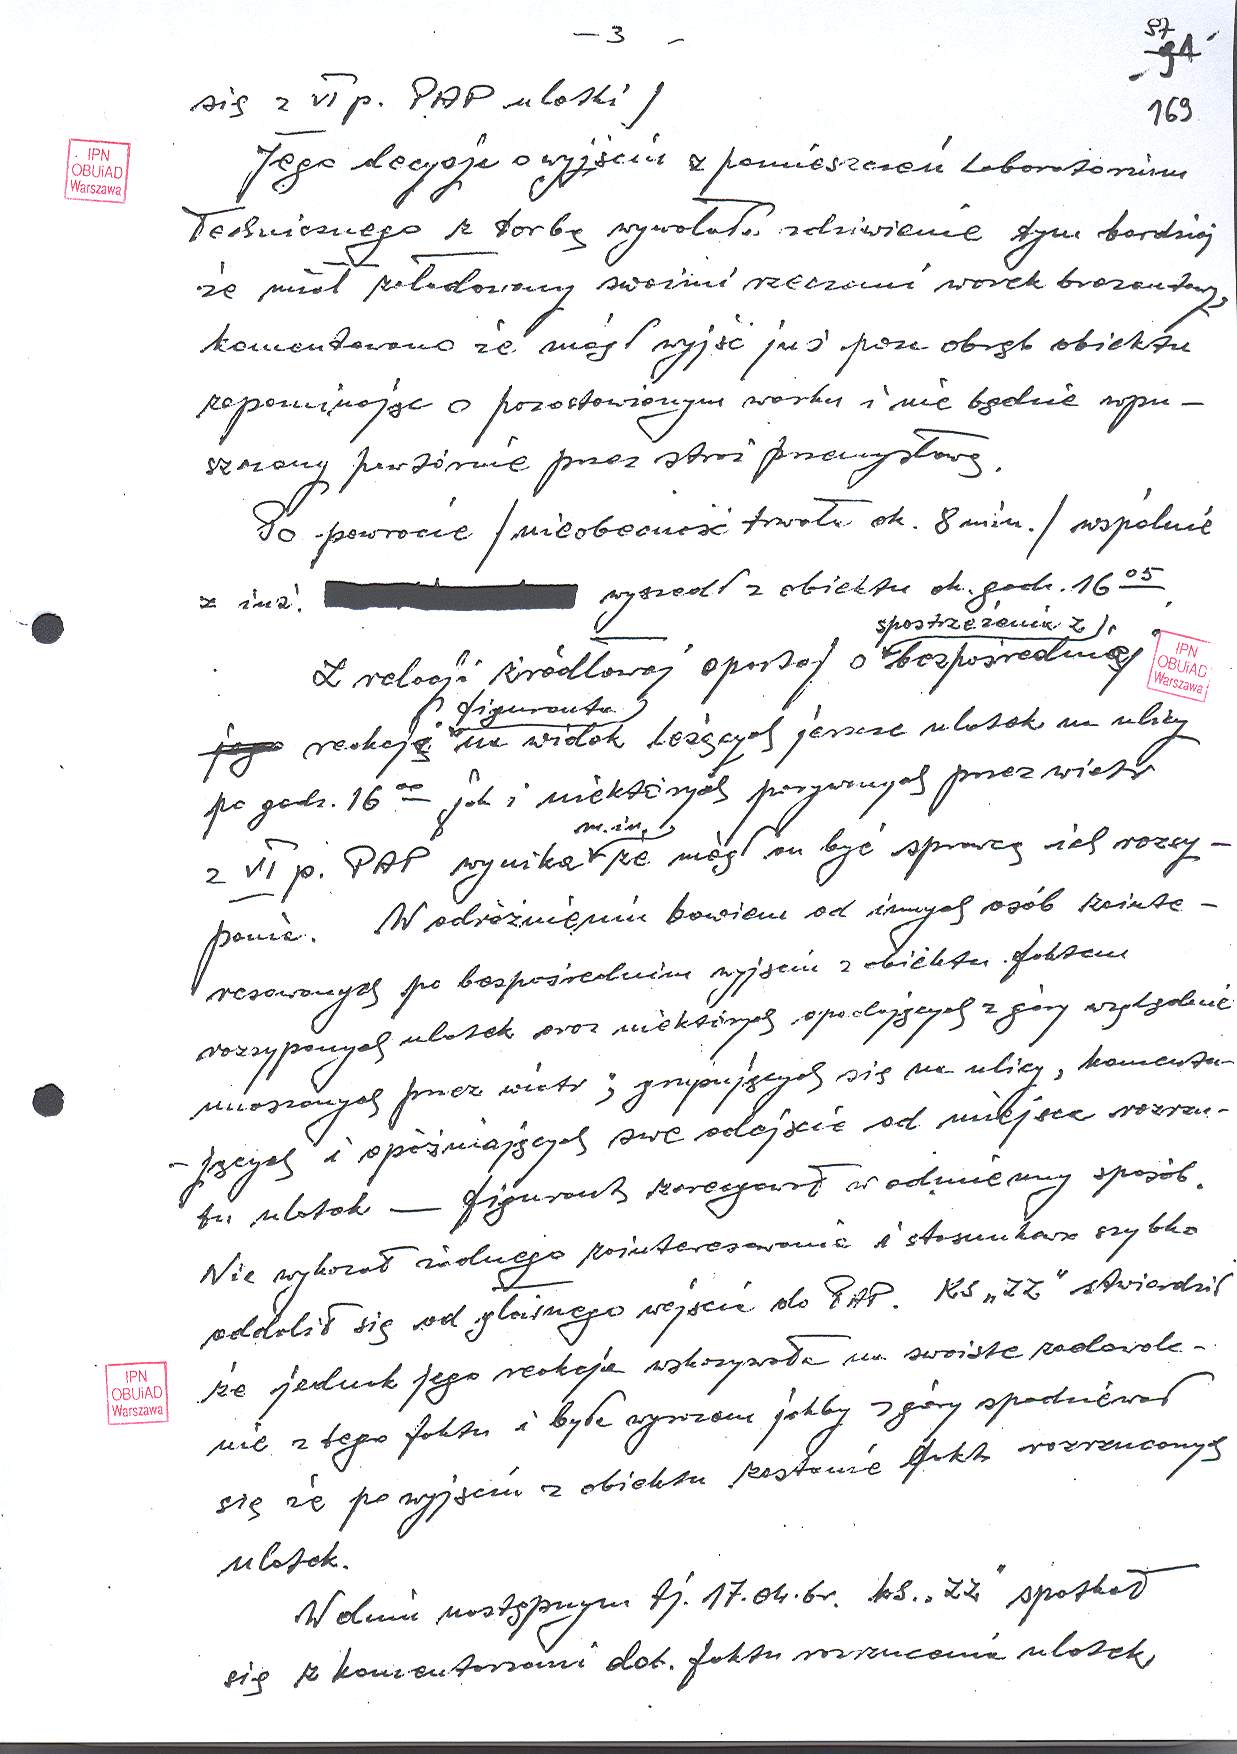 — 3 —
97
91
169
się z VI p. PAP ulotki /
IPN
OBUiAD
Warszawa
Jego decyzja o wyjściu z pomieszczeń Laboratorium
Technicznego z torbą wywołała zdziwienie tym bardziej
że miał załadowany swoimi rzeczami worek brezentowy,
komentowano że mógł wyjść już poza obręb obiektu
zapominając o pozostawionym worku i nie będzie wpu-
szczony powtórnie przez straż przemysłową.
Po powrocie / nieobecność trwała ok. 8 min. / wspólnie
z inż. wyszedł z obiektu ok. godz. 16 05.
spostrzeżenia z
Z relacji źródłowej opartej o bezpośredniej
IPN
OBUiAD
Warszawa
figuranta
jego reakcję na widok leżących jeszcze ulotek na ulicy
po godz. 16 00 jak i niektórych porywanych przez wiatr
m.in.
z VI p. PAP wynika że mógł on być sprawcą ich rozsy-
pania. W odróżnieniu bowiem od innych osób zainte-
resowanych po bezpośrednim wyjściu z obiektu faktem
rozsypanych ulotek oraz niektórych opadających z góry względnie
unoszonych przez wiatr; grupujących się na ulicy, komentu-
-jących i opóźniających swe odejście od miejsca rozrzu-
tu ulotek — figurant zareagował w odmienny sposób.
Nie wykazał żadnego zainteresowania i stosunkowo szybko
oddalił się od głównego wejścia do PAP. KS „ZZ" stwierdził
że jednak jego reakcja wskazywała na swoiste zadowole-
nie z tego faktu i była wyrazem jakby z góry spodziewał
się że po wyjściu z obiektu zastanie fakt rozrzuconych
ulotek.
IPN
OBUiAD
Warszawa
W dniu następnym tj. 17.04.br. ks. „ZZ" spotkał
się z komentarzami dot. faktu rozrzucenia ulotek,